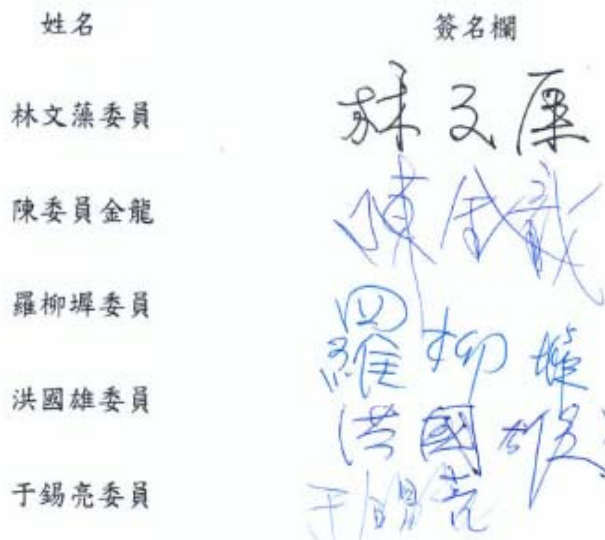 姓名 簽名欄
林文藻委員 林文
陳委員金龍 陳金龍
羅柳墀委員 羅柳墀
洪國雄委員 洪國雄
于錫亮委員 于錫亮